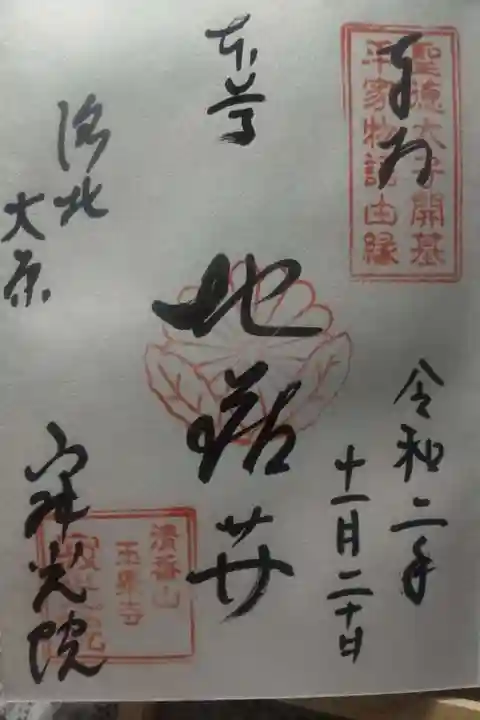 奉拝
聖徳太子開基
平家物語由縁
令和二年
十一月二十日
本尊
地蔵𦬇
洛北
大原
寂光院
清香山
玉泉寺
寂光院